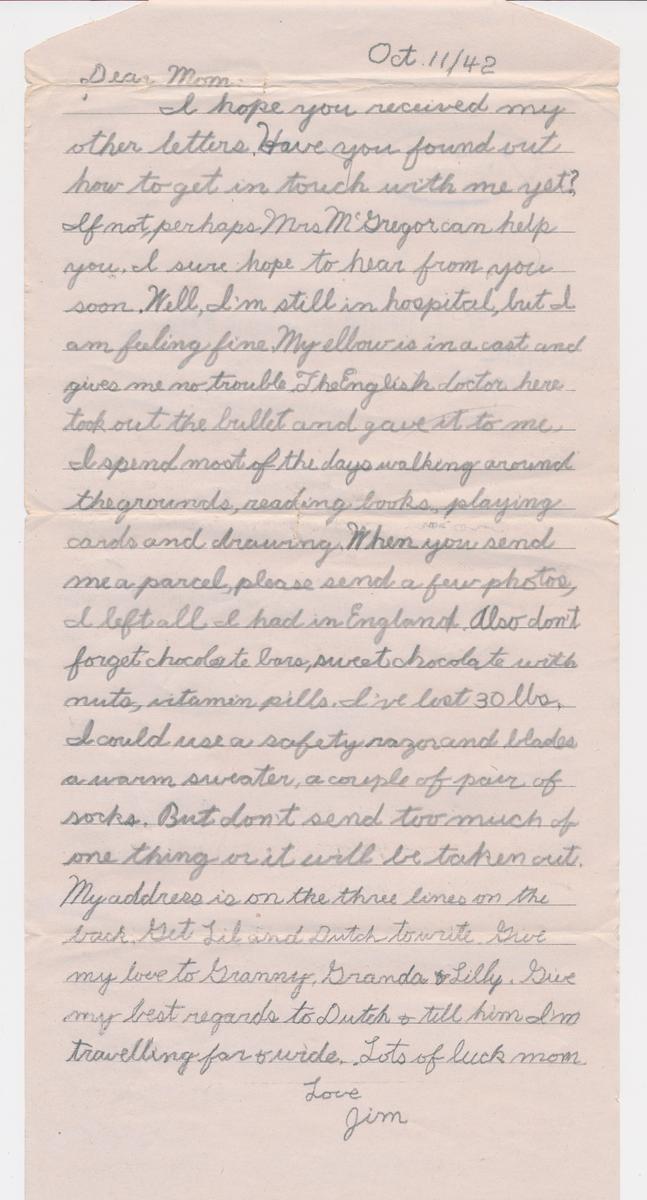 Oct. 11/42
Dear Mom.
I hope you received my
other letters. Have you found out
how to get in touch with me yet?
If not, perhaps Mrs McGregor can help
you. I sure hope to hear from you
soon. Well, I'm still in hospital, but I
am feeling fine. My elbow is in a cast and
gives me no trouble. The English doctor here
took out the bullet and gave it to me.
I spend most of the days walking around
the grounds, reading books, playing
cards and drawing. When you send
me a parcel, please send a few photos,
I left all I had in England. Also don't
forget chocolate bars, sweet chocolate with
nuts, vitamin pills. I've lost 30 lbs.
I could use a safety razor and blades
a warm sweater, a couple of pair of
socks. But don't send too much of
one thing or it will be taken out.
My address is on the three lines on the
back. Get Lil and Dutch to write. Give
my love to Granny, Granda & Lilly. Give
my best regards to Dutch & till him I'm
travelling far & wide. Lots of luck mom
Love
Jim